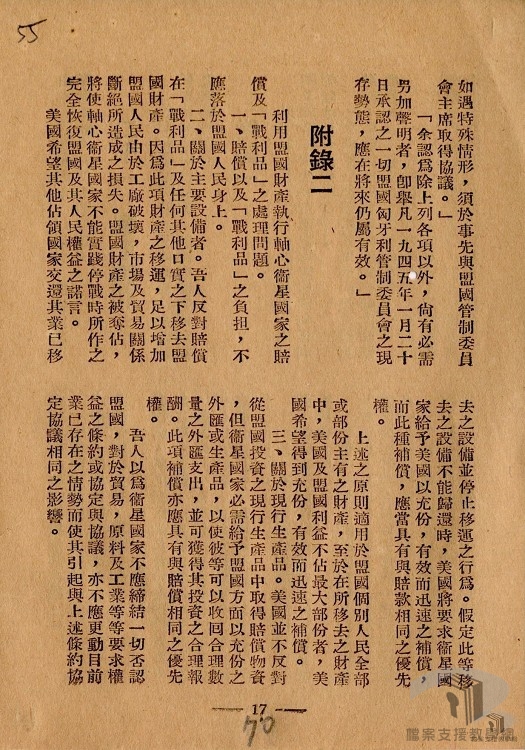 55
如遇特殊情形，須於事先與盟國管制委員
會主席取得協議。」
「余認爲除上列各項以外，尙有必需
另加聲明者，卽舉凡一九四五年一月二十
日承認之一切盟國匈牙利管制委員會之現
存勢態，應在將來仍屬有效。」
附錄二
利用盟國財產執行軸心衞星國家之賠
償及「戰利品」之處理問題。
一、賠償以及「戰利品」之負担，不
應落於盟國人民身上。
二、關於主要設備者。吾人反對賠償
在「戰利品」及任何其他口實之下移去盟
國財產。因爲此項財產之移運，足以增加
盟國人民由於工廠破壞，市場及貿易關係
斷絕所造成之損失。盟國財產之被奪佔，
將使軸心衞星國家不能實踐停戰時所作之
完全恢復盟國及其人民權益之諾言。
美國希望其他佔領國家交還其業已移
去之設備並停止移運之行爲。假定此等移
去之設備不能歸還時，美國將要求衞星國
家給予美國以充份，有效而迅速之補償，
而此種補償，應當具有與賠款相同之優先
權。
上述之原則適用於盟國個別人民全部
或部份主有之財產，至於在所移去之財產
中，美國及盟國利益不佔最大部份者，美
國希望得到充份，有效而迅速之補償。
三、關於現行生產品。美國並不反對
從盟國投資之現行生產品中取得賠償物資
，但衞星國家必需給予盟國方面以充份之
外匯或生產品，以使彼等可以收囘合理數
量之外匯支出，並可獲得其投資之合理報
酬。此項補償亦應具有與賠償相同之優先
權。
吾人以爲衞星國家不應締結一切否認
盟國，對於貿易，原料及工業等等要求權
益之條約或協定與協議，亦不應更動目前
業已存在之情勢而使其引起與上述條約協
定協議相同之影響。
17
70
檔案支援教學網